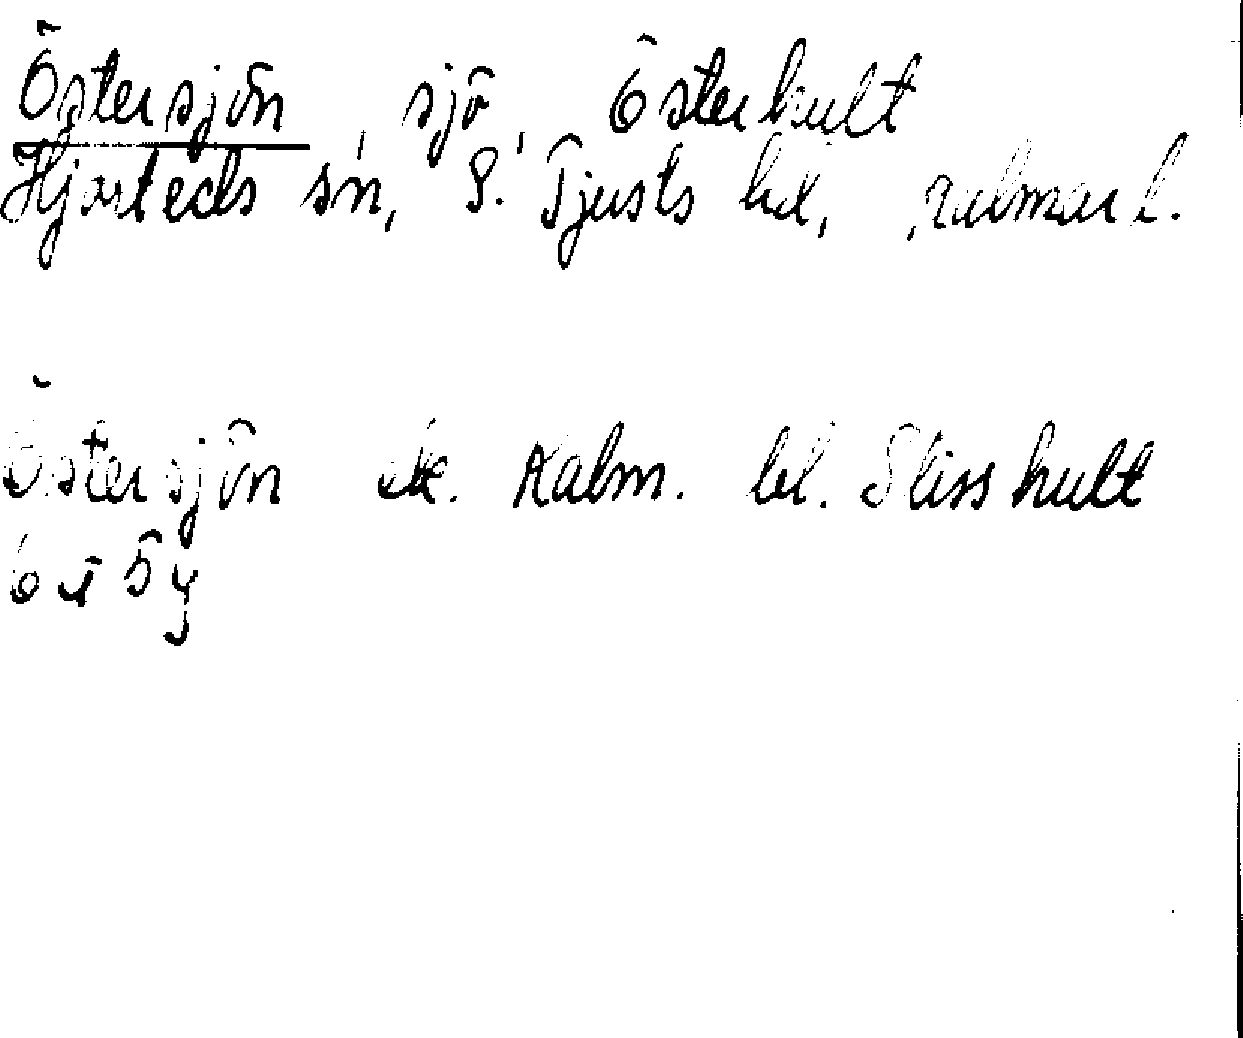 Östersjön, sjö, Österhult
Hjorteds sn, S. Tjusts hd, Kalmar l.
Östersjön ek. Kalm. bl. Slisshult
6 i 5 y